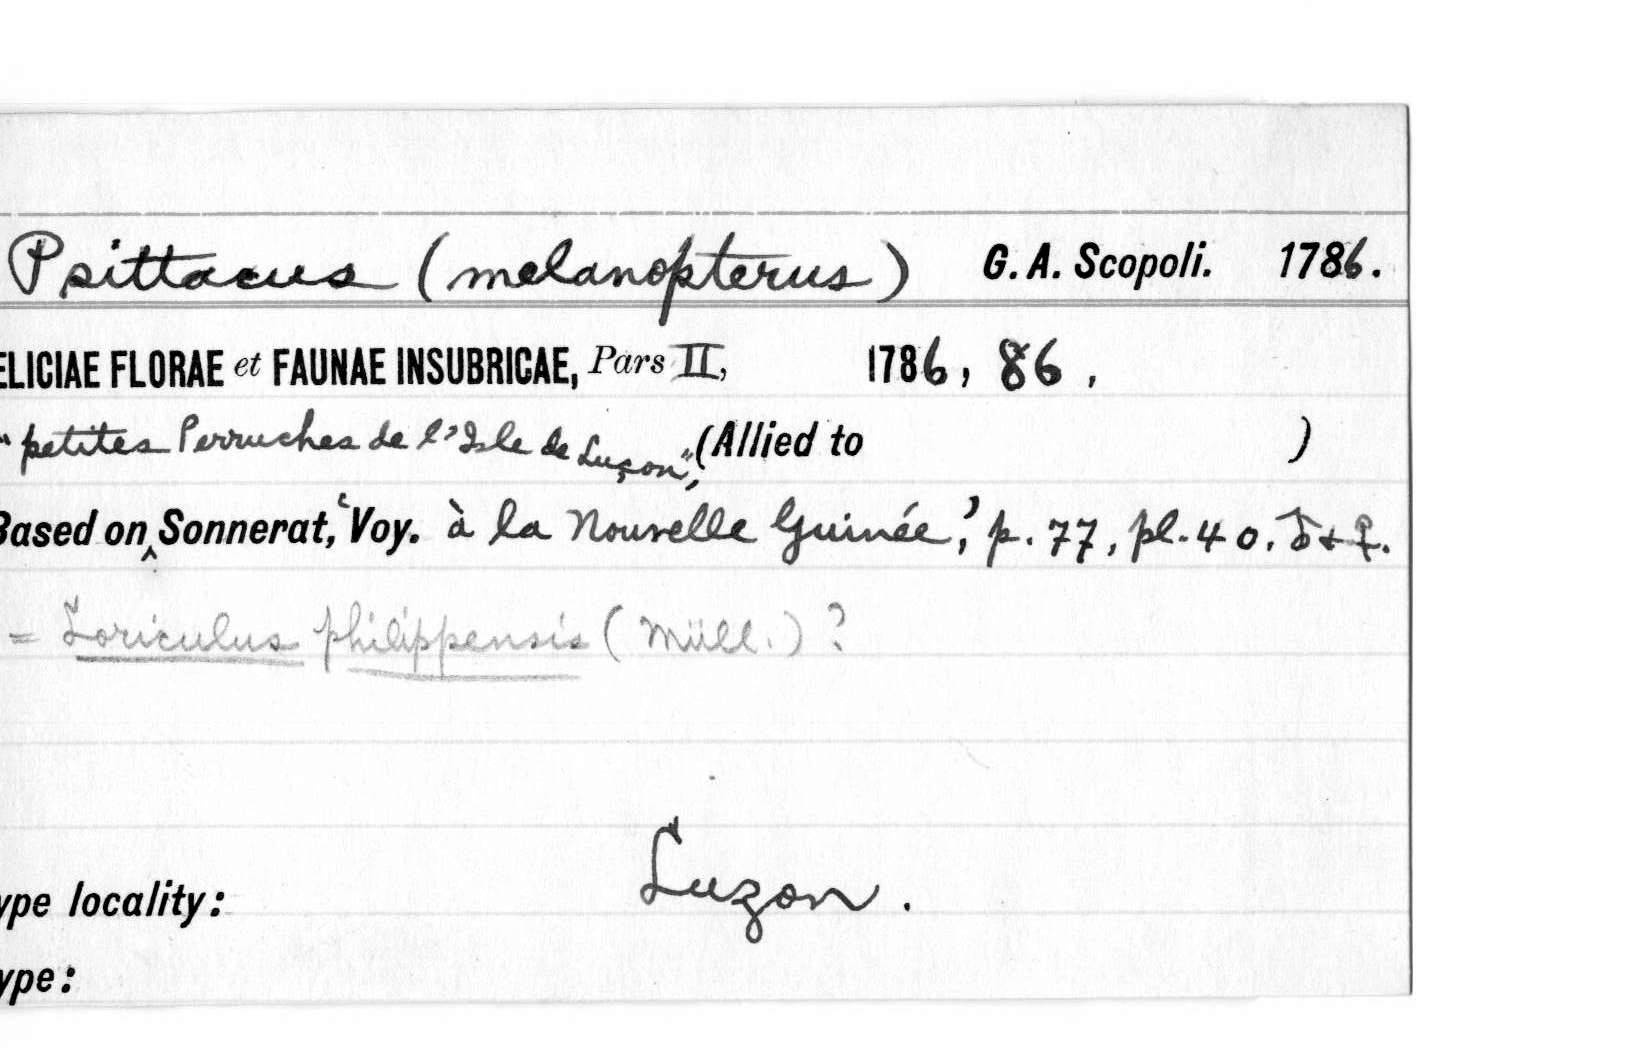 Psittacus (melanopterus) G. A. Scopoli. 1786.
ELICIAE FLORAE et FAUNAE INSUBRICAE, Pars II, 1786, 86.
"petites Perruches de l'Isle de Luçon", (Allied to )
Based on ^ Sonnerat, 'Voy. à la Nouvelle Guinée,' p. 77, pl. 40. ♂ + ♀.
= Loriculus philippensis (Müll.) ?
Luzon.
ype locality:
ype: